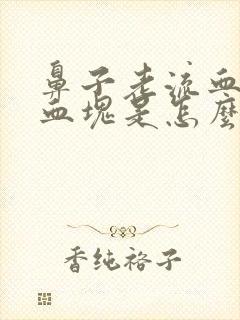 鼻子老流血
血塊是怎麼
香纯裕子